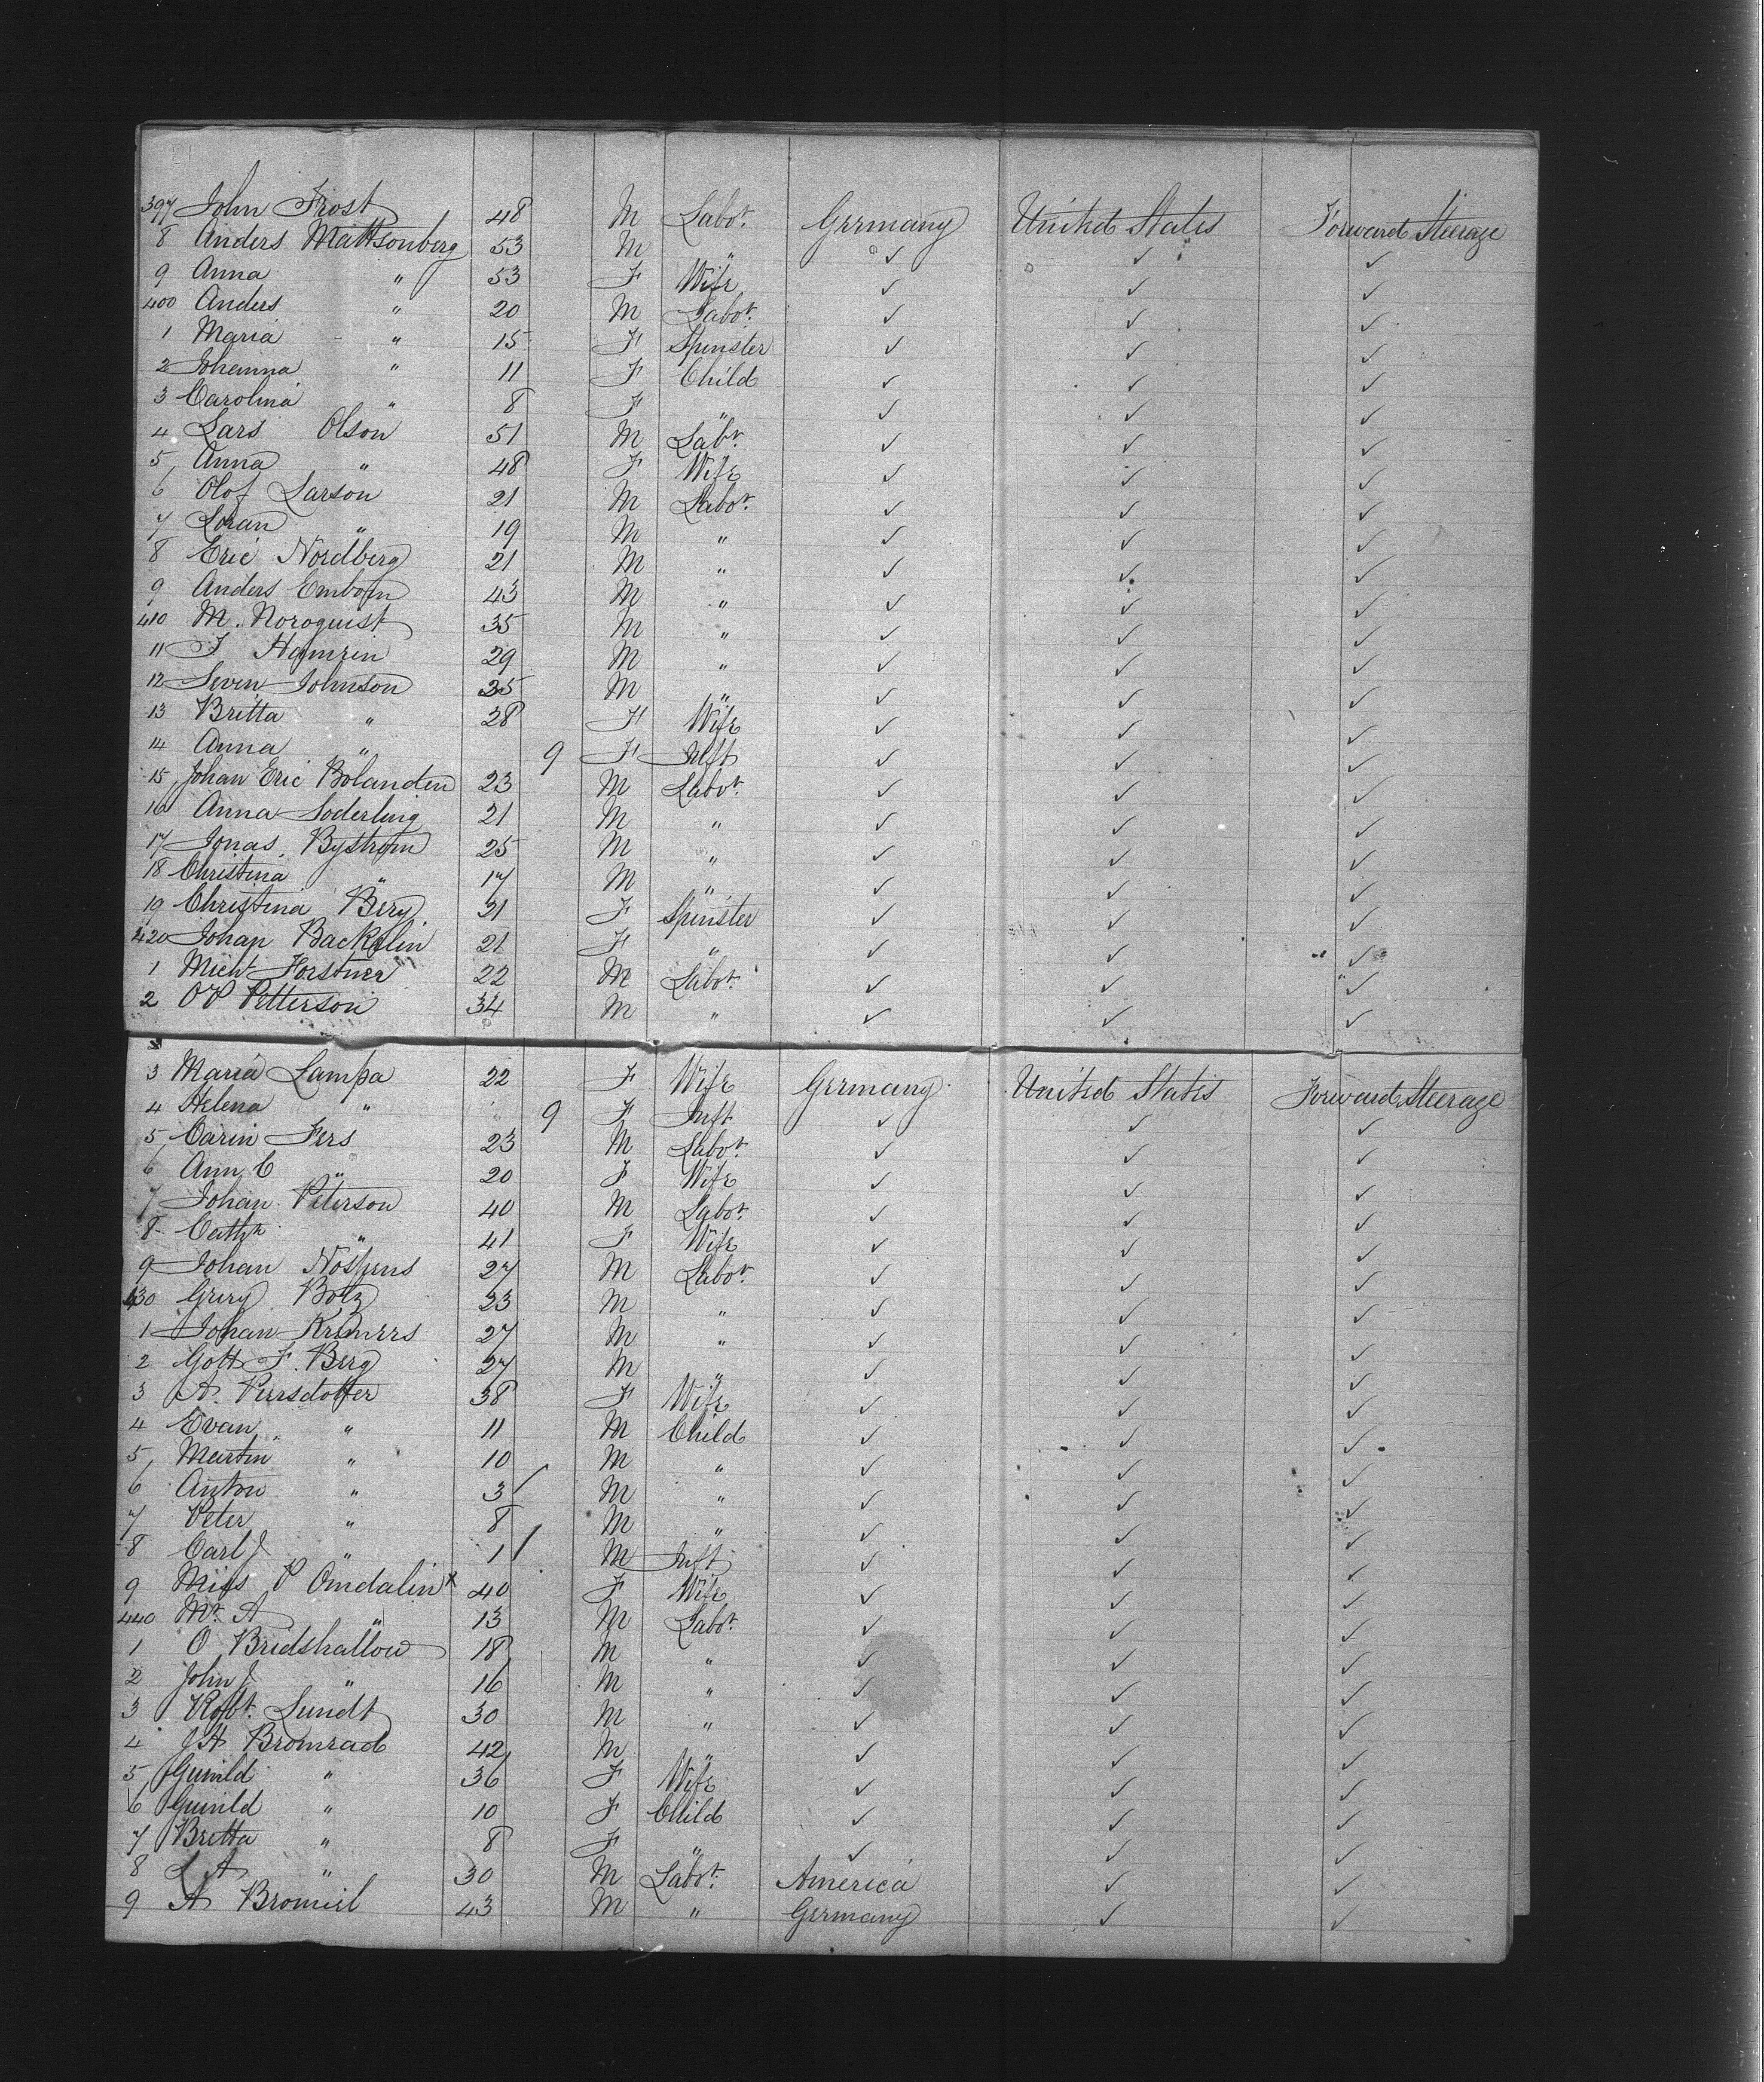 397 John Frost 48 M Labor. Germany United States Forward Steerage
8 Anders Mattsonberg 53 M " ✓ ✓ ✓
9 Anna " 53 F Wife ✓ ✓ ✓
400 Anders " 20 M Labor. ✓ ✓ ✓
1 Maria " 15 F Spinster ✓ ✓ ✓
2 Johanna " 11 F Child ✓ ✓ ✓
3 Carolina " 8 F " ✓ ✓ ✓
4 Lars Olson 51 M Labr. ✓ ✓ ✓
5 Anna " 48 F Wife ✓ ✓ ✓
6 Olof Larson 21 M Labor. ✓ ✓ ✓
7 Loran " 19 M " ✓ ✓ ✓
8 Eric Nordberg 21 M " ✓ ✓ ✓
9 Anders Embom 43 M " ✓ ✓ ✓
410 M. Noroquist 35 M " ✓ ✓ ✓
11 J 29 M " ✓ ✓ ✓
12 Seven Johnson 25 M " ✓ ✓ ✓
13 Britta " 28 F Wife ✓ ✓ ✓
14 Anna " 9 F Inft ✓ ✓ ✓
15 Johan Eric Bolanden 23 M Labor. ✓ ✓ ✓
16 Anna Soderling 21 M " ✓ ✓ ✓
17 Jonas Bystrom 25 M " ✓ ✓ ✓
18 Christina " 17 M " ✓ ✓ ✓
19 Christina Berg 21 F Spinster ✓ ✓ ✓
420 Johan Backelin 21 F " ✓ ✓ ✓
1 Micht Forstner 22 M Labor. ✓ ✓ ✓
2 O P Petterson 34 M " ✓ ✓ ✓
3 Maria Lampa 22 F Wife Germany United States Forward Steerage
4 Helena " 9 F Inft ✓ ✓ ✓
5 Carin Fers 23 M Labor. ✓ ✓ ✓
6 Ann C " 20 F Wife ✓ ✓ ✓
7 Johan Peterson 40 M Labor. ✓ ✓ ✓
8 Cathr " 41 F Wife ✓ ✓ ✓
9 Johan 27 M Labor. ✓ ✓ ✓
430 Botz 23 M " ✓ ✓ ✓
1 Johan Kremers 27 M " ✓ ✓ ✓
2 Gott F. Berg 27 M " ✓ ✓ ✓
3 A. Persdotter 38 F Wife ✓ ✓ ✓
4 Evan " 11 M Child ✓ ✓ ✓
5 Martin " 10 M " ✓ ✓ ✓
6 Anton " 3 / M " ✓ ✓ ✓
7 Peter " 8 M " ✓ ✓ ✓
8 Carl J " 1 / M Inft ✓ ✓ ✓
9 Miss P Omdalin x 40 F Wife ✓ ✓ ✓
440 Mr. A " 13 M Labor. ✓ ✓ ✓
1 O Bridshallow 18 M " ✓ ✓ ✓
2 John J " 16 M " ✓ ✓ ✓
3 Robt. Lundt 30 M " ✓ ✓ ✓
4 J A Bromrad 42 M " ✓ ✓ ✓
5 Gunild " 36 F Wife ✓ ✓ ✓
6 Gunild " 10 F Child ✓ ✓ ✓
7 Britta " 8 F " ✓ ✓ ✓
8 L A " 30 M Labor. America ✓ ✓
9 A Bromiel 43 M " Germany ✓ ✓